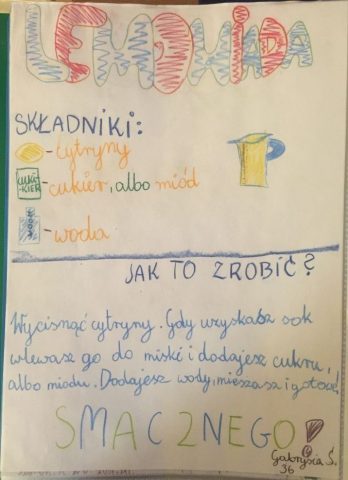 LEMONIADA
SKŁADNIKI:
- cytryny
CUKIER - cukier, albo miód
WODA - woda
JAK TO ZROBIĆ?
Wycisnąć cytryny. Gdy uzyskasz sok
wlewasz go do miski i dodajesz cukru,
albo miodu. Dodajesz wody, mieszasz i gotowe!
SMACZNEGO!
Gabrysia S.
3b